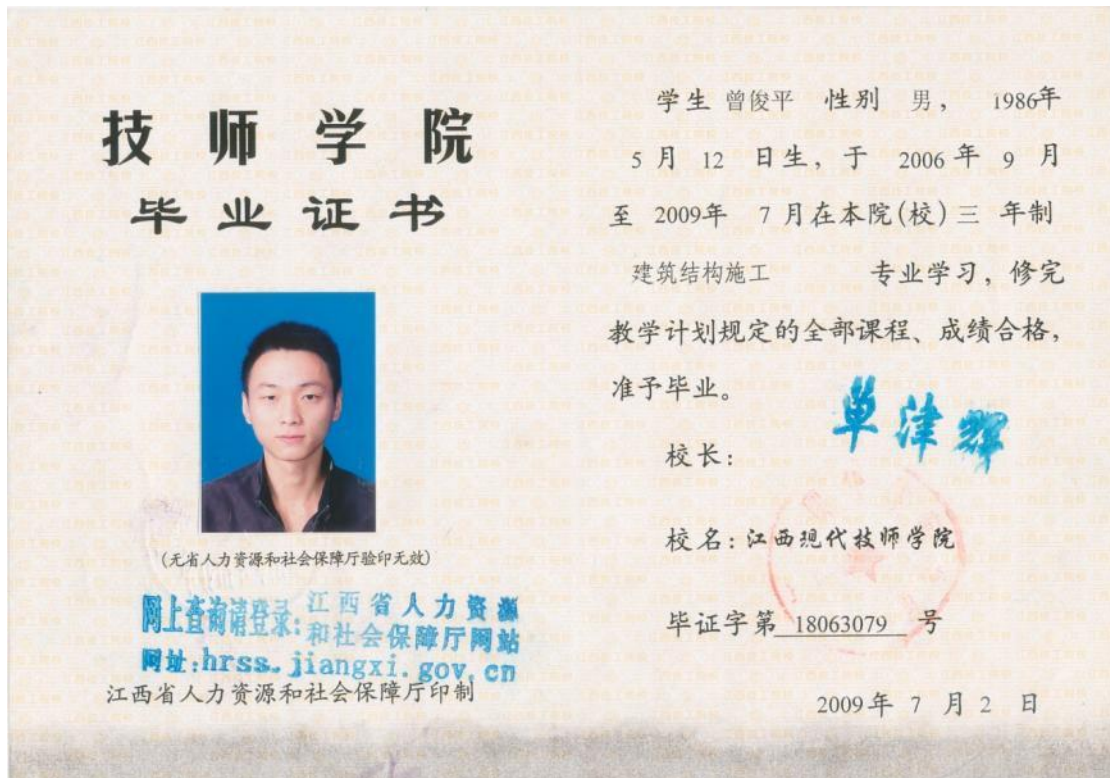 技师学院
毕业证书
(无省人力资源和社会保障厅验印无效)
网上查询请登录:江西省人力资源
和社会保障厅网站
网址:hrss.jiangxi.gov.cn
江西省人力资源和社会保障厅印制
学生 曾俊平 性别 男, 1986年
5 月 12 日生, 于 2006 年 9 月
至 2009年 7 月在本院(校) 三 年制
建筑结构施工 专业学习, 修完
教学计划规定的全部课程、成绩合格,
准予毕业。
校长: 单津辉
校名: 江西现代技师学院
毕证字第 18063079 号
2009 年 7 月 2 日